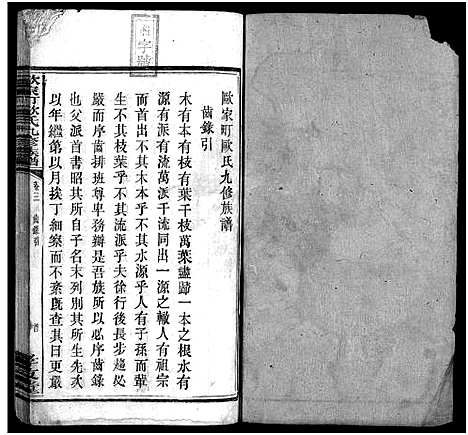 歐家町歐氏九修族譜
齒錄引
木有本有枝有葉千枝萬葉盡歸一本之根水有
源有派有流千派千流同出一源之轍人有祖宗
首出不其木本乎不其水源乎人有子孫而輩
生不其枝葉乎不其流派乎夫徐行後長步趨必
嚴而序齒排班尊卑務辨是吾族所以必序齒錄
也父派首書昭其所自子名末列別其所生先次
以年繼第以月挨丁細察而不紊既查其目更最
卷三
齒錄引
字號